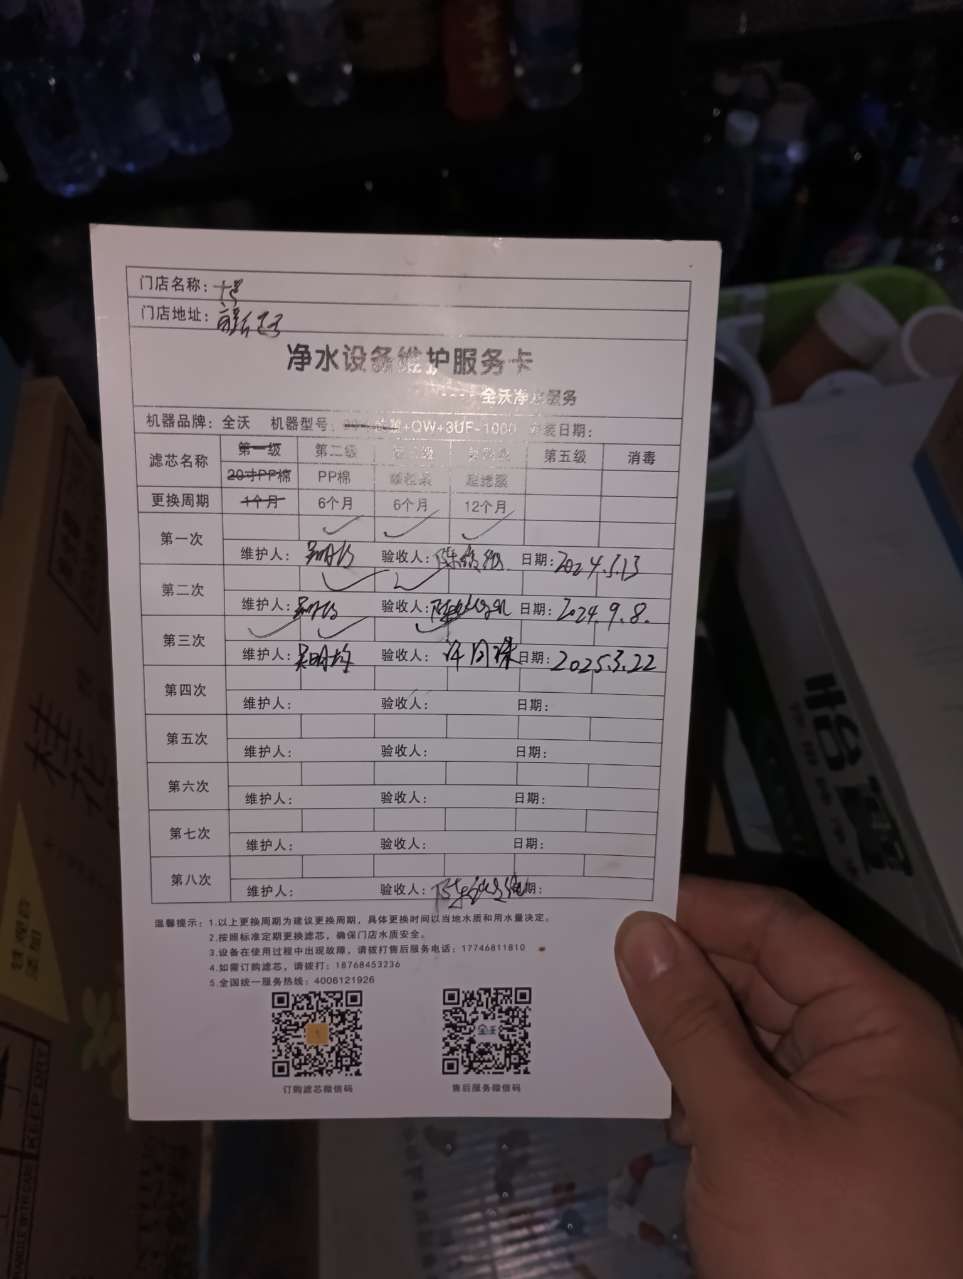 门店名称：
门店地址：
净水设备维护服务卡
全沃净水服务
机器品牌：全沃 机器型号：+QW+3UF-1000 安装日期：
滤芯名称 第一级 第二级 第五级 消毒
20寸PP棉 PP棉
更换周期 1个月 6个月 6个月 12个月
第一次
维护人： 验收人： 日期：2024.5.13
第二次
维护人： 验收人： 日期：2024.9.8.
第三次
维护人：吴明均 验收人： 日期：2025.3.22
第四次
维护人： 验收人： 日期：
第五次
维护人： 验收人： 日期：
第六次
维护人： 验收人： 日期：
第七次
维护人： 验收人： 日期：
第八次
维护人： 验收人： 日期：
温馨提示：1.以上更换周期为建议更换周期，具体更换时间以当地水质和用水量决定。
2.按照标准定期更换滤芯，确保门店水质安全。
3.设备在使用过程中出现故障，请拨打售后服务电话：17746811810
4.如需订购滤芯，请拨打：18768453236
5.全国统一服务热线：4006121926
全沃
订购滤芯微信码 售后服务微信码
桂花
KEEP DRY
HANDLE WITH CARE